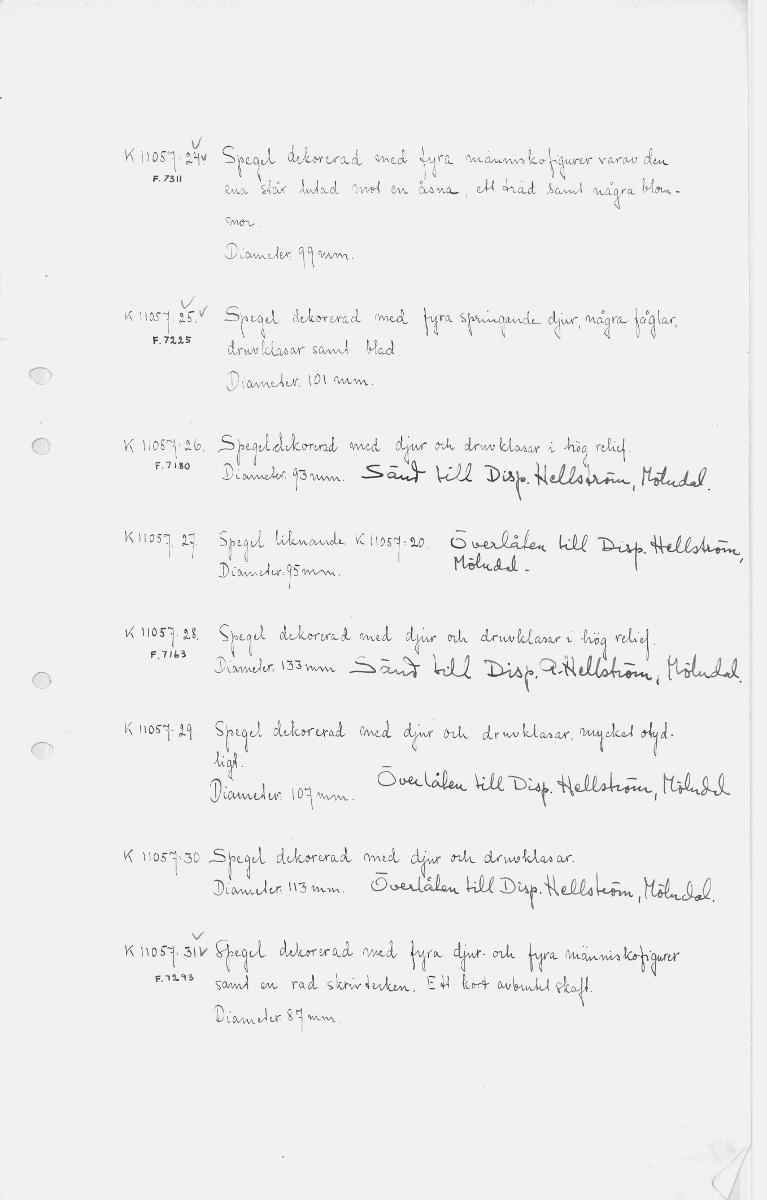 K 11057:24 Spegel dekorerad med fyra människofigurer varav den
F. 7311
ena står lutad mot en åsna, ett träd samt några blom-
mor.
Diameter. 99 mm.
K 11057:25. Spegel dekorerad med fyra springande djur, några fåglar,
F. 7225
druvklasar samt blad
Diameter. 101 mm.
K 11057:26. Spegel dekorerad med djur och druvklasar i hög relief.
F. 7180
Diameter. 93 mm. Sänd till Disp. Hellström, Mölndal.
K 11057. 27. Spegel liknande K 11057:20. Överlåten till Disp. Hellström,
Diameter. 95 mm. Mölndal.-
K 11057:28. Spegel dekorerad med djur och druvklasar i hög relief.
F. 7163
Diameter. 133 mm Sänd till Disp. A. Hellström, Mölndal.
K 11057:29. Spegel dekorerad med djur och druvklasar, mycket otyd-
ligt.
Diameter. 107 mm. Överlåten till Disp. Hellström, Mölndal
K 11057:30 Spegel dekorerad med djur och druvklasar.
Diameter. 113 mm. Överlåten till Disp. Hellström, Mölndal.
K 11057:31 Spegel dekorerad med fyra djur- och fyra människofigurer
F. 7293
samt en rad skrivtecken. Ett kort avbrutet skaft.
Diameter 87 mm.